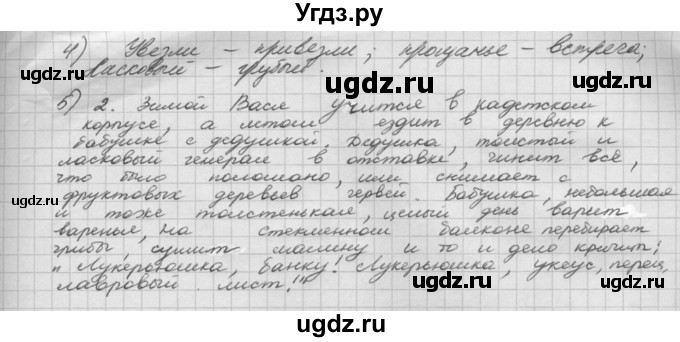 Угдз.ру
4) Увезли – привезли; прощанье – встреча;
Ласковый – грубый.
5) 2. Зимой Вася учится в кадетском
корпусе, а летом ездит в деревню к
бабушке с дедушкой. Дедушка, толстый и
ласковый генерал в отставке, чинит всё,
что было поломано, или снимает с
фруктовых деревьев червей. Бабушка, небольшая
и тоже толстенькая, целый день варит
варенье, на стеклянном балконе перебирает
грибы, сушит малину и то и дело кричит:
"Лукерьюшка, банку! Лукерьюшка, уксус, перец,
лавровый лист!"
ugdz.ru
ugdz.ru
ugdz.ru
ugdz.ru
ugdz.ru
ugdz.ru
ugdz.ru
ugdz.ru
ugdz.ru
ugdz.ru
ugdz.ru
ugdz.ru
ugdz.ru